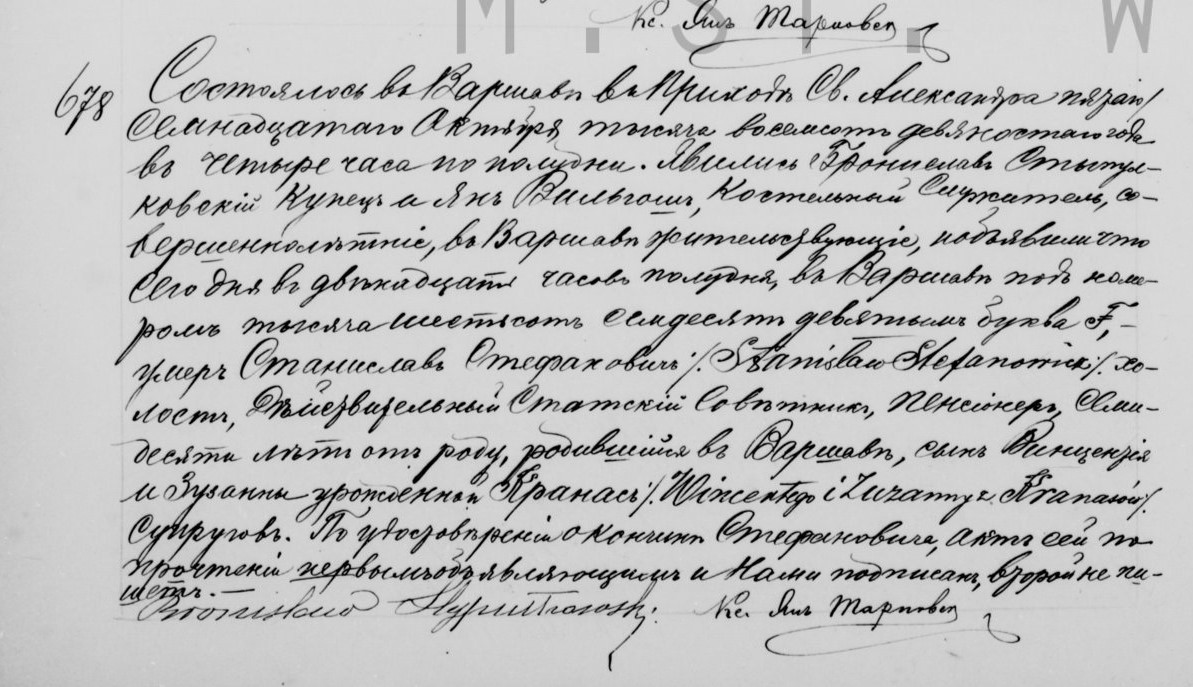 M . ST . W
Кс. Янъ Тарновск
678 Состоялось въ Варшавѣ въ Приходѣ Св. Александра пятаго/
семнадцатаго Октября тысяча восемсотъ девяностаго года
въ четыре часа по полудни. Явились Брониславъ Стыпул-
ковскій Купецъ и Янъ Вильгошъ, Костельный Служитель, со-
вершеннолѣтніе, въ Варшавѣ жительствующіе, и объявили что
сего дня въ двѣнадцать часовъ полудня, въ Варшавѣ подъ номе-
ромъ тысяча шестьсотъ семдесятъ девятымъ буква F,-
умеръ Станиславъ Стефановичъ /. Stanisław Stefanowicz ./. хо-
лостъ, Дѣйствительный Статскій Совѣтникъ, пенсіонеръ, семи-
десяти лѣтъ отъ роду, родившійся въ Варшавѣ, сынъ Винцентія
и Зузанны урожденной Кранасъ /. Wincentego i Zuzanny z Kranasów /.
супруговъ. По удостовѣреніи о кончинѣ Стефановича, актъ сей по
прочтеніи первымъ объявляющимъ и Нами подписанъ, второй не пи-
шетъ.-
Кс. Янъ Тарновск